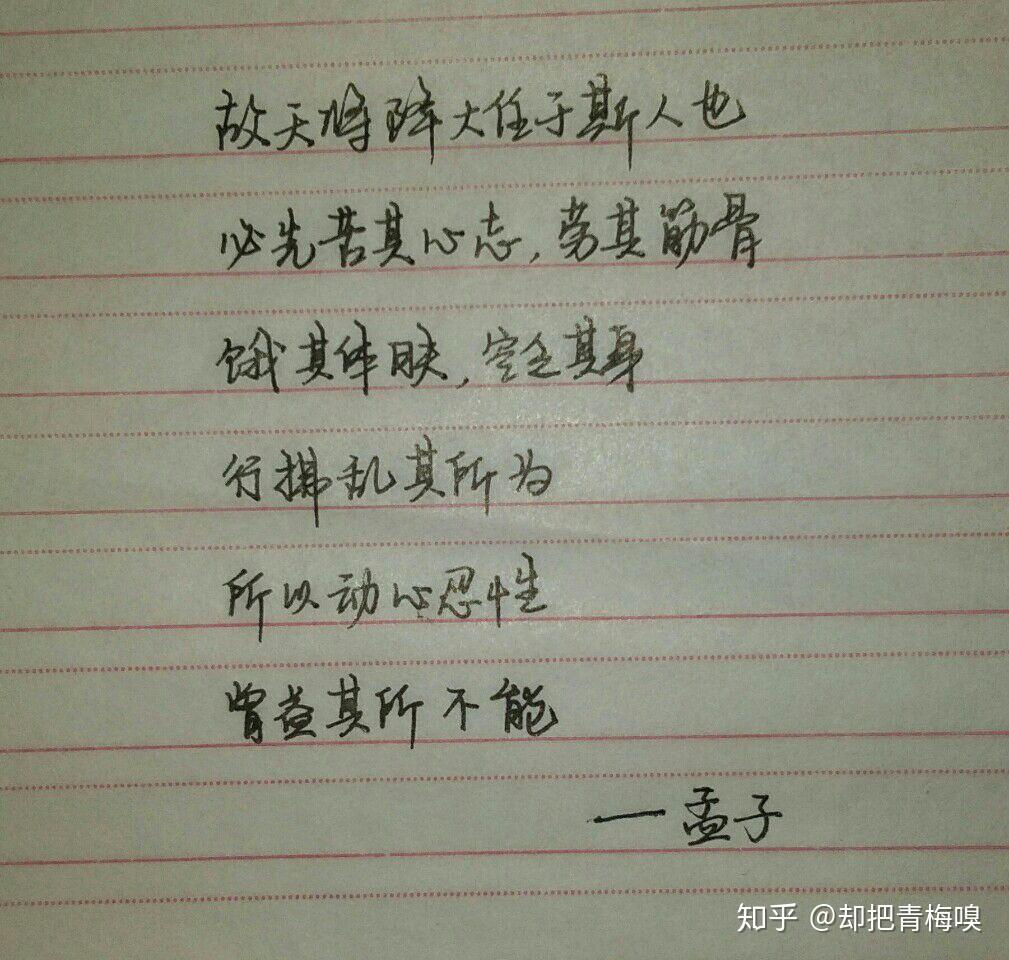 故天将降大任于斯人也
必先苦其心志,劳其筋骨
饿其体肤,空乏其身
行拂乱其所为
所以动心忍性
曾益其所不能
—孟子
知乎 @却把青梅嗅